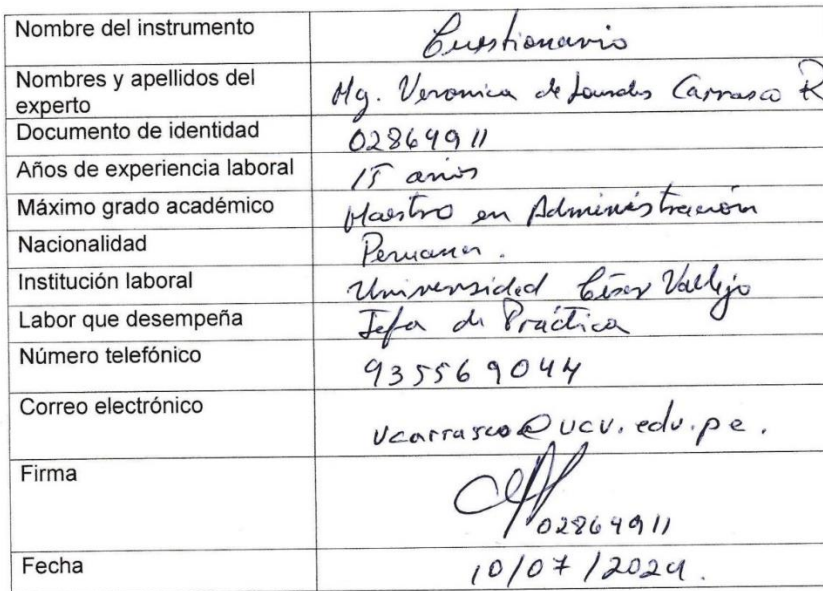 Nombre del instrumento
Cuestionario
Nombres y apellidos del
experto
Mg. Veronica de Lourdes Carrasco R
Documento de identidad
02864911
Años de experiencia laboral
15 años
Máximo grado académico
Maestro en Administración
Nacionalidad
Peruana.
Institución laboral
Universidad César Vallejo
Labor que desempeña
Jefa de Práctica
Número telefónico
935569044
Correo electrónico
vcarrasco@ucv.edu.pe.
Firma
02864911
Fecha
10/07/2024.